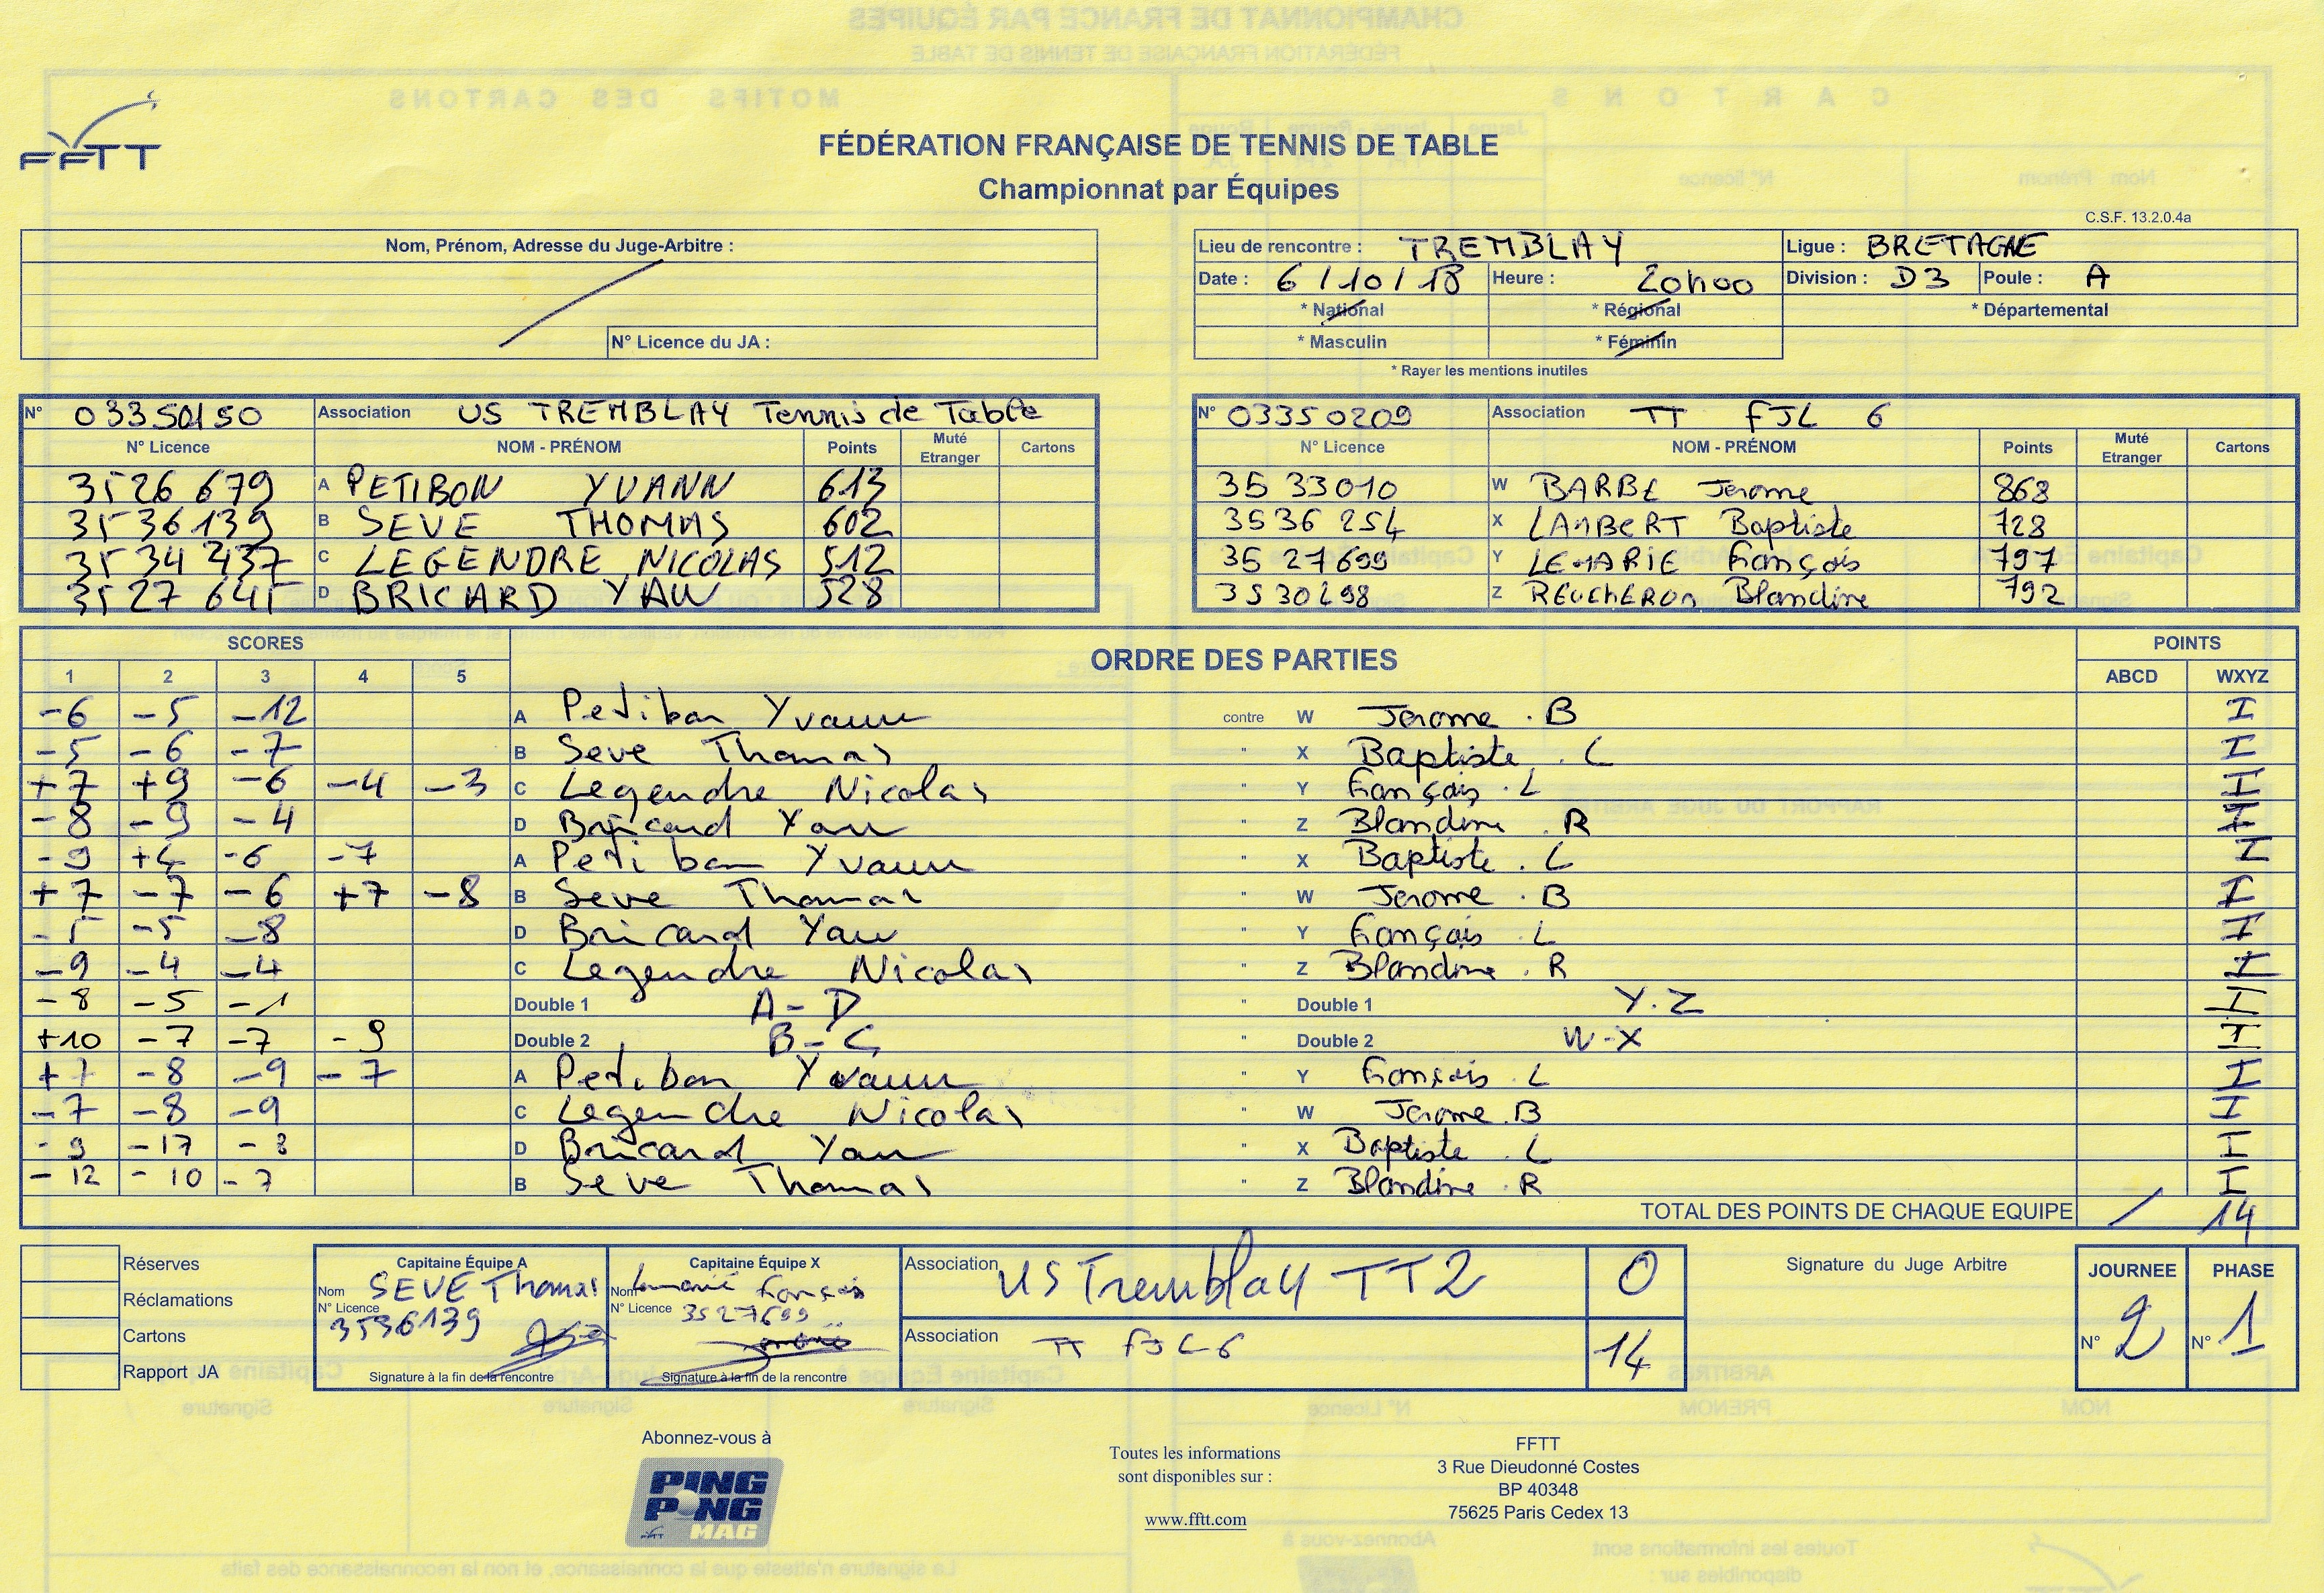 FFTT
FÉDÉRATION FRANÇAISE DE TENNIS DE TABLE
Championnat par Équipes
C.S.F. 13.2.0.4a
Nom, Prénom, Adresse du Juge-Arbitre :
N° Licence du JA :
Lieu de rencontre : TREMBLAY Ligue : BRETAGNE
Date : 6/10/18 Heure : 20h00 Division : D3 Poule : A
* National * Régional * Départemental
* Masculin * Féminin
* Rayer les mentions inutiles
N° 03350150 Association US TREMBLAY Tennis de Table
N° Licence NOM - PRÉNOM Points Muté Etranger Cartons
3526 679 A PETIBON YVANN 613
3536139 B SEVE THOMAS 602
3534 437 C LEGENDRE NICOLAS 512
3527 641 D BRICARD YAN 528
N° 03350209 Association TT FJL 6
N° Licence NOM - PRÉNOM Points Muté Etranger Cartons
35 33010 W BARBE Jerome 868
3536 254 X LAMBERT Baptiste 728
35 27699 Y LEMARIE François 797
3530498 Z REUCHERON Blandine 792
SCORES ORDRE DES PARTIES POINTS
1 2 3 4 5 ABCD WXYZ
-6 -5 -12 A Petibon Yvann contre W Jerome . B I
-5 -6 -7 B Seve Thomas " X Baptiste . L I
+7 +9 -6 -4 -3 C Legendre Nicolas " Y François . L I
-8 -9 -4 D Bricard Yan " Z Blandine . R I
-9 +6 -6 -7 A Petibon Yvann " X Baptiste . L I
+7 -7 -6 +7 -8 B Seve Thomas " W Jerome . B I
-5 -5 -8 D Bricard Yan " Y François . L I
-9 -4 -4 C Legendre Nicolas " Z Blandine . R I
-8 -5 -1 Double 1 A-D " Double 1 Y.Z I
+10 -7 -7 -9 Double 2 B-C " Double 2 W-X I
+7 -8 -9 -7 A Petibon Yvann " Y François . L I
-7 -8 -9 C Legendre Nicolas " W Jerome . B I
-9 -17 -3 D Bricard Yan " X Baptiste . L I
-12 -10 -7 B Seve Thomas " Z Blandine . R I
TOTAL DES POINTS DE CHAQUE EQUIPE / 14
Réserves
Réclamations
Cartons
Rapport JA
Capitaine Équipe A
Nom SEVE Thomas
N° Licence 3536139
Signature à la fin de la rencontre
Capitaine Équipe X
Nom Lemarié François
N° Licence 3527699
Signature à la fin de la rencontre
Association US Tremblay TT2 0
Association TT FJL 6 14
Signature du Juge Arbitre
JOURNEE PHASE
N° 2 N° 1
Abonnez-vous à
PING PONG MAG
Toutes les informations
sont disponibles sur :
www.fftt.com
FFTT
3 Rue Dieudonné Costes
BP 40348
75625 Paris Cedex 13